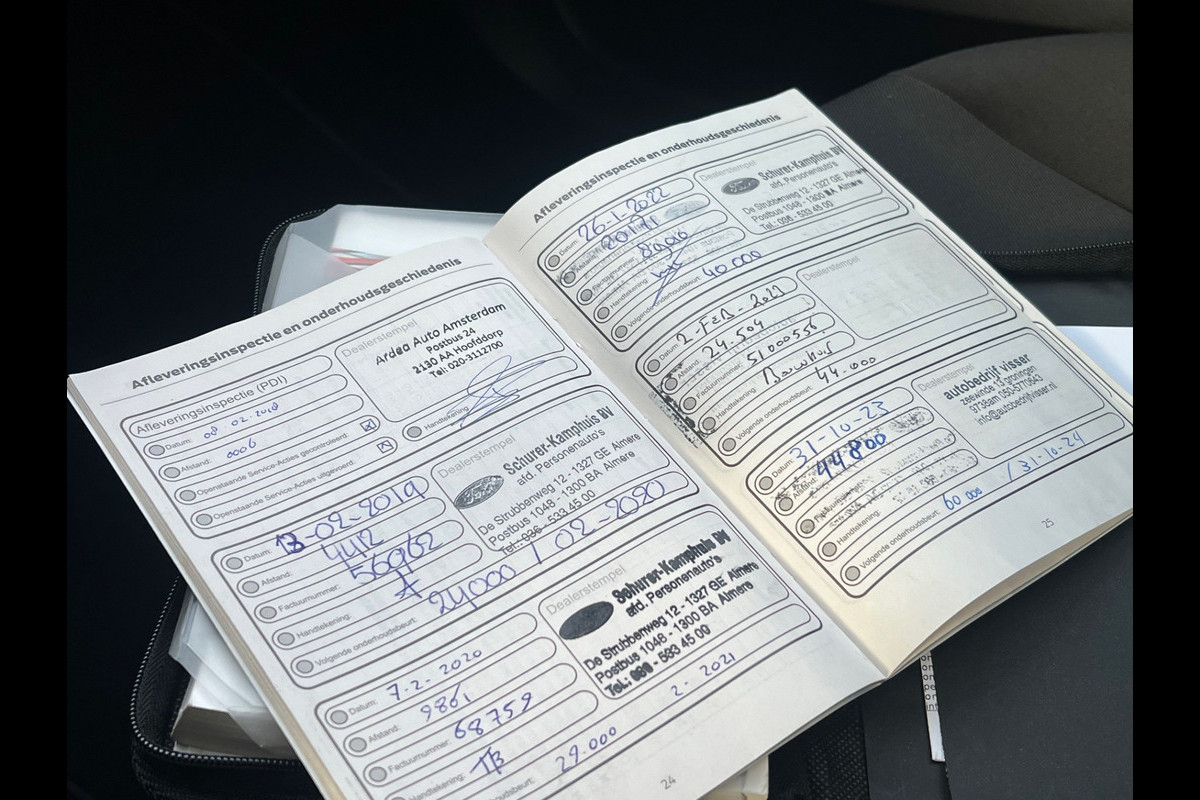 Afleveringsinspectie en onderhoudsgeschiedenis
Afleveringsinspectie (PDI)
Datum: 08 02 2018
Afstand: 0006
Openstaande Service-Acties gecontroleerd:
Openstaande Service-Acties uitgevoerd:
Dealerstempel
Ardea Auto Amsterdam
Postbus 24
2130 AA Hoofddorp
Tel: 020-3112700
Handtekening
Datum: 13-02-2019
Afstand: 4412
Factuurnummer: 56962
Handtekening:
Volgende onderhoudsbeurt: 24000 / 02-2020
Dealerstempel
Ford
Schurer-Kamphuis BV
afd. Personenauto's
De Strubbenweg 12 - 1327 GE Almere
Postbus 1048 - 1300 BA Almere
Tel.: 036 - 533 45 00
Datum: 7-2-2020
Afstand: 9861
Factuurnummer: 68759
Handtekening: TB
onderhoudsbeurt: 29.000 2-2021
Dealerstempel
Schurer-Kamphuis BV
afd. Personenauto's
De Strubbenweg 12 - 1327 GE Almere
Postbus 1048 - 1300 BA Almere
Tel.: 036 - 533 45 00
24
Afleveringsinspectie en onderhoudsgeschiedenis
Datum: 26-1-2022
Afstand:
Factuurnummer:
Handtekening:
Volgende onderhoudsbeurt: 40000
Dealerstempel
Ford
Schurer-Kamphuis BV
afd. Personenauto's
De Strubbenweg 12 - 1327 GE Almere
Postbus 1048 - 1300 BA Almere
Tel.: 036 - 533 45 00
Datum: 2-FEB-2023
Afstand: 24.504
Factuurnummer: 51000556
Handtekening:
Volgende onderhoudsbeurt: 44.000
Dealerstempel
Datum: 31-10-23
Afstand: 44800
Factuurnummer:
Handtekening:
Volgende onderhoudsbeurt: 60 000 / 31-10-24
Dealerstempel
autobedrijf visser
zeewinde 13 groningen
9738am 050-5770643
info@autobedrijfvisser.nl
25